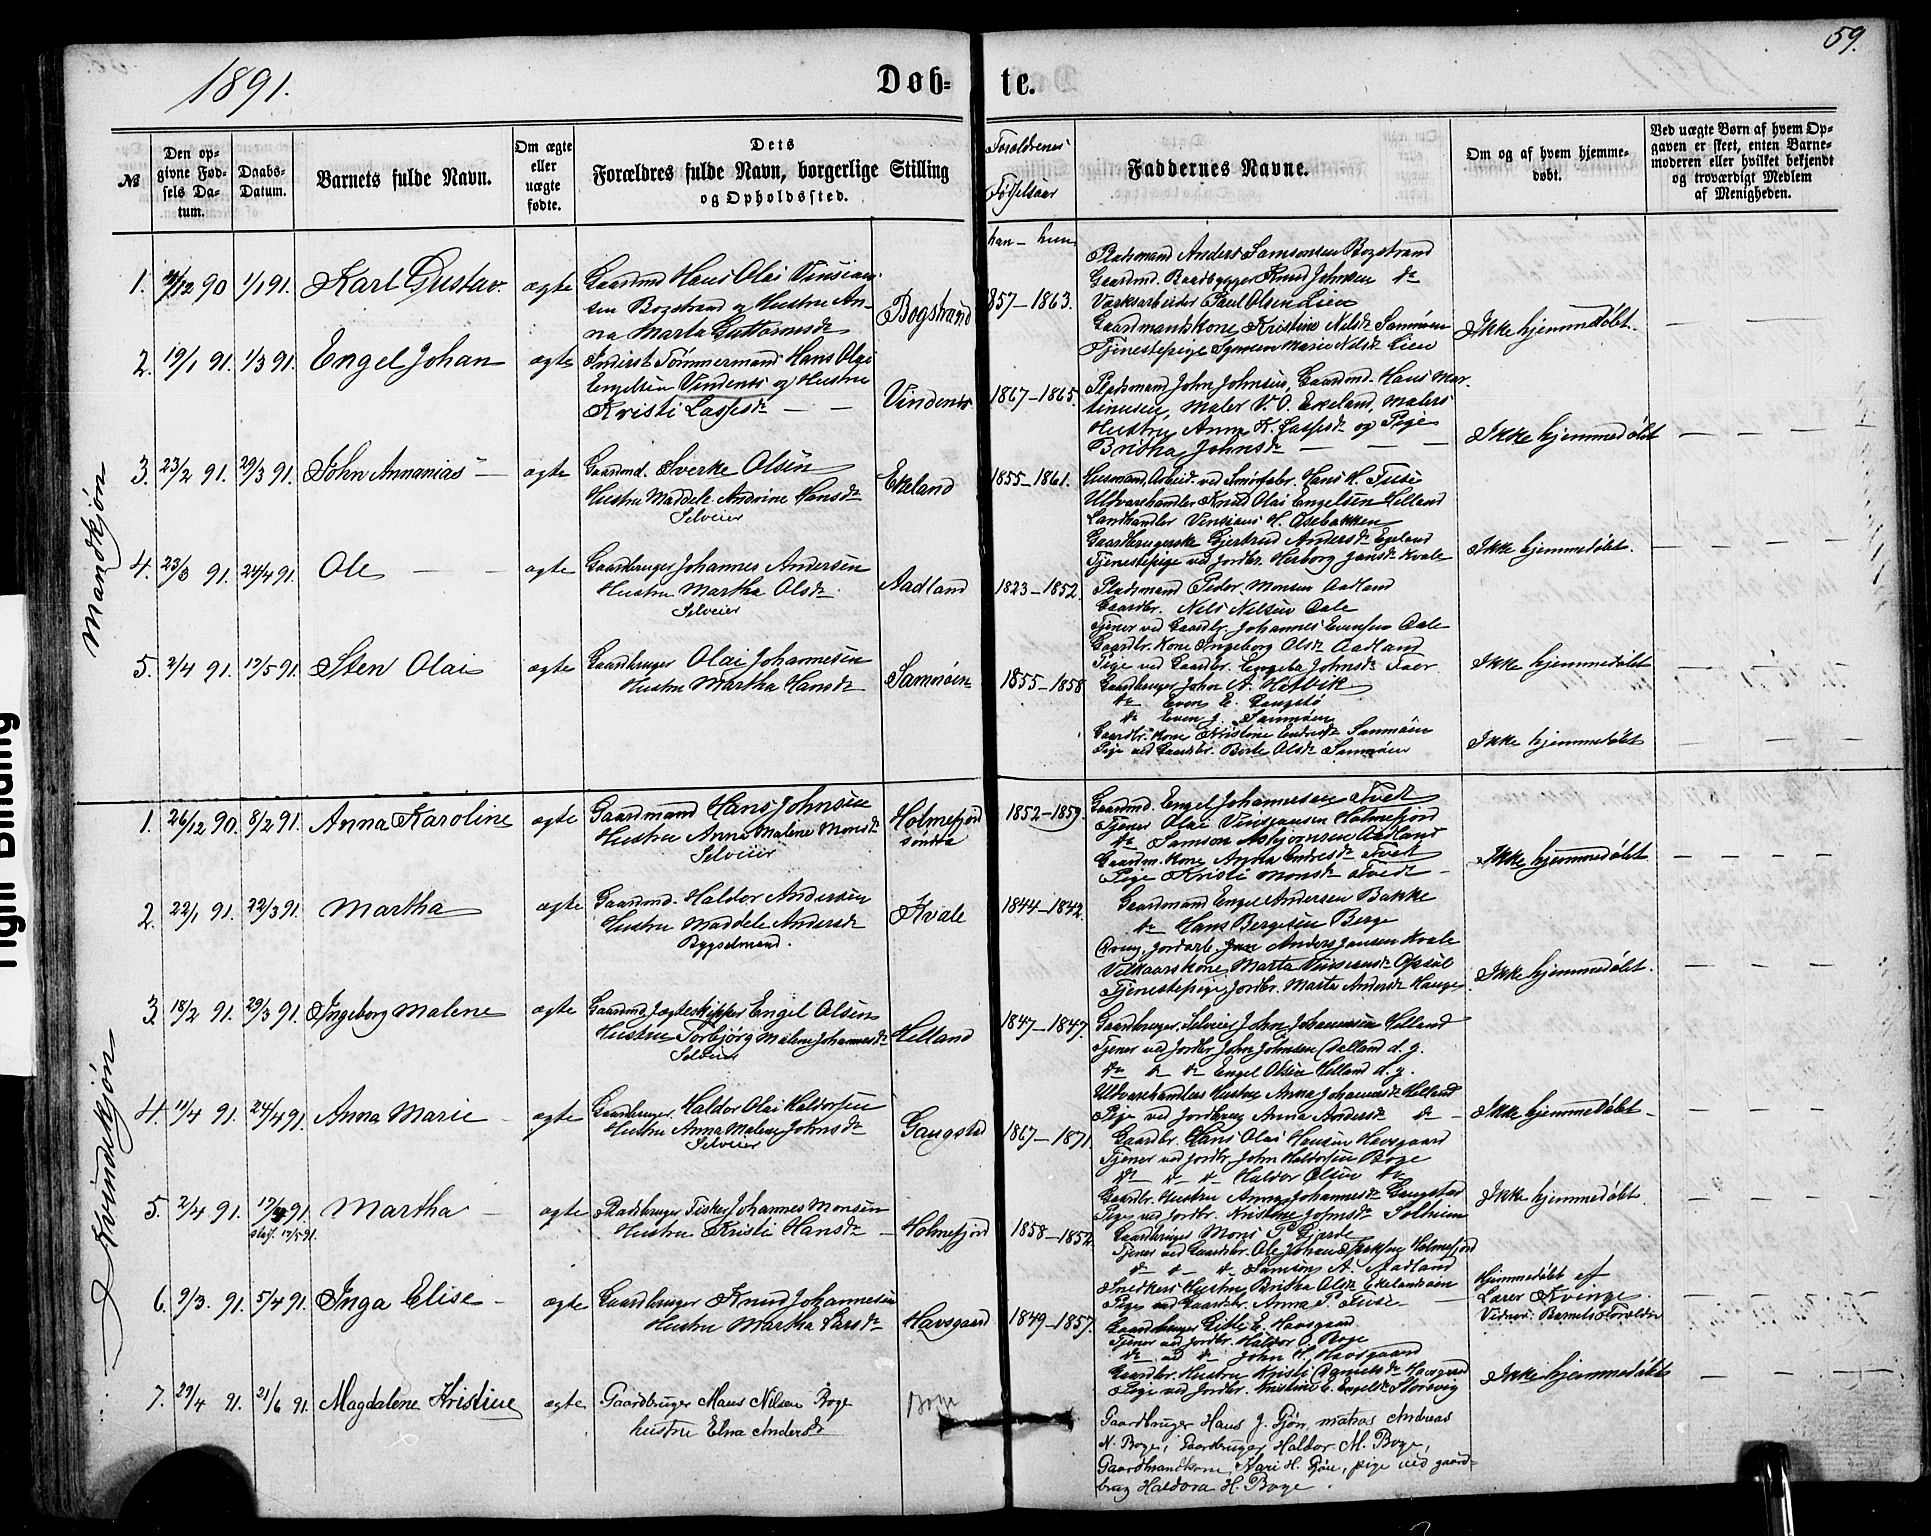 59.
1891.
Døb- te.
№
Den opgivne Fødsels Datum.
Daabs-Datum.
Barnets fulde Navn.
Om ægte eller uægte fødte.
Dets Forældres fulde Navn, borgerlige Stilling og Opholdssted.
Forældrenes Fødselsaar
han – hun
Faddernes Navne.
Om og af hvem hjemmedøbt.
Ved uægte Børn af hvem Opgaven er skeet, enten Barnemoderen eller hvilket bekjendt og troværdigt Medlem af Menigheden.
Mandkjøn
1. /12 90 1/1 91. Karl Gustav. ægte
Gaardmd Hans Olai Vinsian-
sen Bogstrand og Hustru An-
na Marta Guttormsdr
Bogstrand
1857 – 1863.
Pladsmand Anders Samsonsen Bogstrand
Gaardmd. Baadbygger Knud Johnsen do
Værksarbeider Paul Olsen Lien
Gaardmandskone Kristine Nilsdr Samnøen
Tjenestepige Marie Nilsdr Lien
Ikke hjemmedøbt.
2. 19/1 91. 1/3 91. Engel Johan ægte
Inderst Tømmermand Hans Olai
Engelsen Vindenes og Hustru
Kristi Lassesdr
Vindenes
1867 – 1865.
Pladsmand John Johnsen, Gaardmd. Hans Mar-
tinusen, Maler V. O. Ekeland, Malers
Hustru Anna K. Lassesdr og Pige
Britha Johnsdr
Ikke hjemmedøbt
3. 23/2 91. 29/3 91. John Annanias ægte
Gaardmd. Sverke Olsen
Hustru Maddele Andrine Hansdr
Selveier
Ekeland
1855 – 1861.
Husmand, Arbeid. ved Hans H. Fuse
Udvarehandler Knud Olai Engelsen Helland
Landhandler Vinsians H. Osebakken
Gaardbrugerske Gjertrud Andersdr Ekeland
Tjenestepige ved Jordbr. Herborg Jansdr Kvale
Ikke hjemmedøbt.
4. 23/3 91. 24/4 91. Ole ægte
Gaardbruger Johannes Andersen
Hustru Martha Olsdr.
Selveier
Aadland
1823 – 1852.
Pladsmand Peder Monsen Aadland
Gaardbr. Nils Nilsen Aale
Tjener ved Gaardbr. Johannes Evensen Aale
Gaardbr. Kone Ingeborg Olsdr Aadland
Pige ved Gaardbr. Engeba Johnsdr
Ikke hjemmedøbt
5. 2/4 91. 17/5 91. Sten Olai ægte
Gaardbruger Olai Johannesen
Hustru Martha Hansdr
Samnøen
1855 – 1858
Gaardbruger John A. Hetvik
do Even E. Gangstø
do Even J. Samnøen
Gaardbr. Kone Kristine Endresdr Samnøen
Pige ved Gaardbr. Birte Olsdr Samnøen
Ikke hjemmedøbt
Kvindekjøn
1. 26/12 90. 8/2 91. Anna Karoline ægte
Gaardmand Hans Johnsen
Hustru Anna Malene Monsdr
Selveier
Holmefjord
søndre
1852 – 1859.
Gaardmd. Engel Johannesen Tvet
Tjener Olai Vinsiansen Holmefjord
do Samson Asbjørnsen Aadland
Gaardm. Kone Anna Endresdr Tvet
Pige Kristi Monsdr Tvedt
Ikke hjemmedøbt
2. 22/1 91. 22/3 91. Martha ægte
Gaardmd. Haldor Andersen
Hustru Maddele Andersdr
Bygselmand.
Kvale
1844 – 1842.
Gaardmand Engel Andersen Bakke
do Hans Bergesen Berge
Anders Jansen Kvale
Vilkaarskone Marta Vinsiansdr Opsøl
Tjenestepige, Jordbr. Marta Andersdr Hauge
Ikke hjemmedøbt.
3. 18/2 91. 29/3 91. Ingeborg Malene ægte
Gaardmd. Jægteskipper Engel Olsen
Hustru Torbjørg Malene Johannesdr
Selveier
Helland
1847 – 1847.
Gaardbruger, Selveier John Johannesen Helland
Tjener ved Jordbr. John Johnsen Dalland d. y.
do do do Engel Olsen Helland d. y.
Udvarehandlers Hustru Anna Johannesdr Helland
Pige ved Jordbrug Anna Andersdr do
Ikke hjemmedøbt
4. 11/4 91. 24/4 91. Anna Marie ægte
Gaardbruger, Haldor Olai Haldorsen
Hustru Anna Malene Johnsdr
Selveier
Gangstad
1867 – 1871.
Gaardbr. Hans Olai Hansen Havsgaard
Tjener ved Jordbr. John Haldorsen Boge
do do do Haldor Olsen do
Gaardbr. Hustru Anna Johannesdr Gangstad
Pige ved Jordbr. Kristine Johnsdr Solheim
Ikke hjemmedøbt
5. 2/4 91. 17/4 91. Martha ægte
17/5 91.
Pladsbruger Fisker Johannes Monsen
Hustru Kristi Hansdr
Holmefjord
1858 – 1852.
Gaardbruger Mons P. Gjerde
Tjener ved Gaardbr. Ole Johan Holmefjord
do do do Samson A. Aadland
Snedkers Hustru Britha Olsdr
Pige ved Gaardbr. Anna P. Fuse
6. 9/3. 91. 5/4 91. Inga Elise ægte
Gaardbruger Knud Johannesen
Hustru Martha Larsdr
Havsgaard
1849 – 1857.
Gaardbruger Gitle E. Havsgaard
Tjener ved Jordbr. Haldor O. Boge
do ved do John H. Havsgaard
Gaardbr. Hustru Kristi Danielsdr Havsgaard
Pige ved Jordbr. Kristine E. Engelsdr Storevig
Hjemmedøbt af
Lærer Kvinge.
Vidner: Barnets Forældre
Ikke hjemmedøbt
7. 29/4 91. 21/6 91. Magdalene Kristine ægte
Gaardbruger Mans Nilsen Boge
hustru Elna Andersdr
Boge
Gaardbruger Hans J. Gjøn, matros Andreas
N. Boge, Gaardbruger Haldor M. Boge,
Gaardmandkone Kari H. Gjøn, pige ved gaard-
brug Haldora H. Boge.
Tight Binding